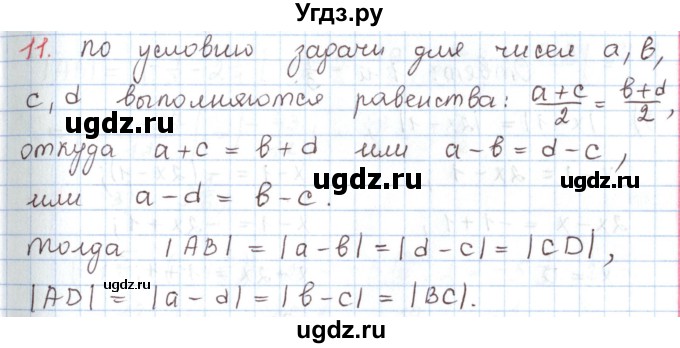 Угдз.ру
11. по условию задачи для чисел a, b,
c, d выполняются равенства: \frac{a+c}{2} = \frac{b+d}{2},
ugdz.ru ugdz.ru
откуда a + c = b + d или a - b = d - c,
ugdz.ru
или a - d = b - c.
ugdz.ru ugdz.ru
Тогда |AB| = |a - b| = |d - c| = |CD|,
ugdz.ru
|AD| = |a - d| = |b - c| = |BC|.
ugdz.ru ugdz.ru
ugdz.ru